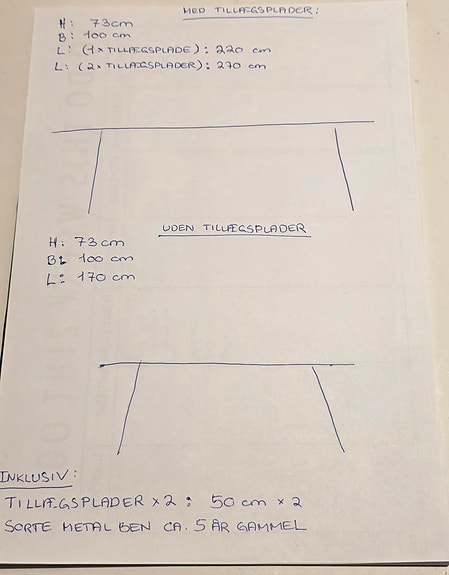 MED TILLÆGSPLADER:
H: 73cm
B: 100 cm
L: (1x TILLÆGSPLADE): 220 cm
L: (2x TILLÆGSPLADER): 270 cm
UDEN TILLÆGSPLADER
H: 73 cm
B: 100 cm
L: 170 cm
INKLUSIV:
TILLÆGSPLADER x2: 50 cm x 2
SORTE METAL BEN CA. 5 ÅR GAMMEL